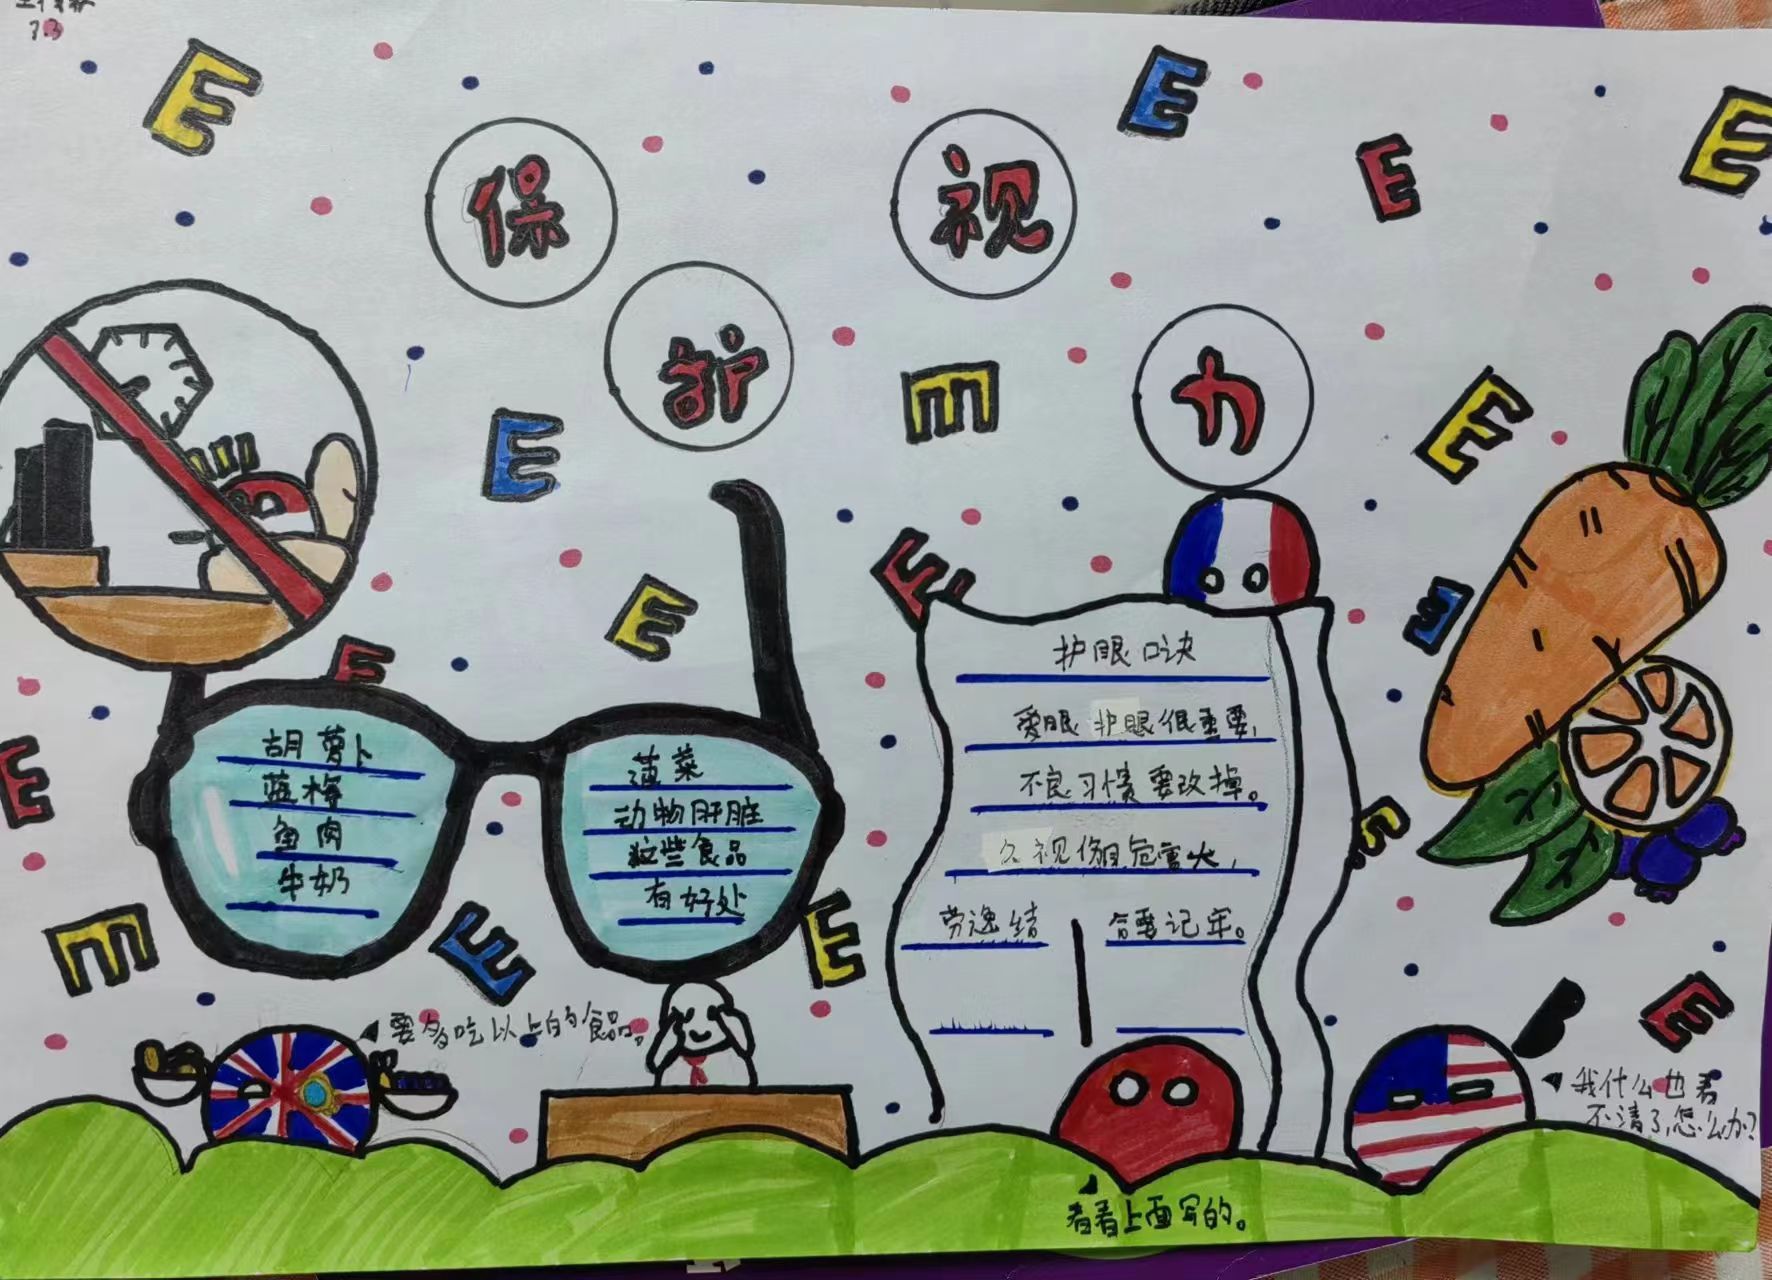 7.3
保护视力
胡萝卜
蓝梅
鱼肉
牛奶
菠菜
动物肝脏
这些食品
有好处
护眼口诀
爱眼护眼很重要,
不良习惯要改掉。
久视伤目危害大,
劳逸结合要记牢。
要多吃以上的食品。
我什么也看
不清了,怎么办?
看看上面写的。
E E E E E E E E E E E E E E E E E E